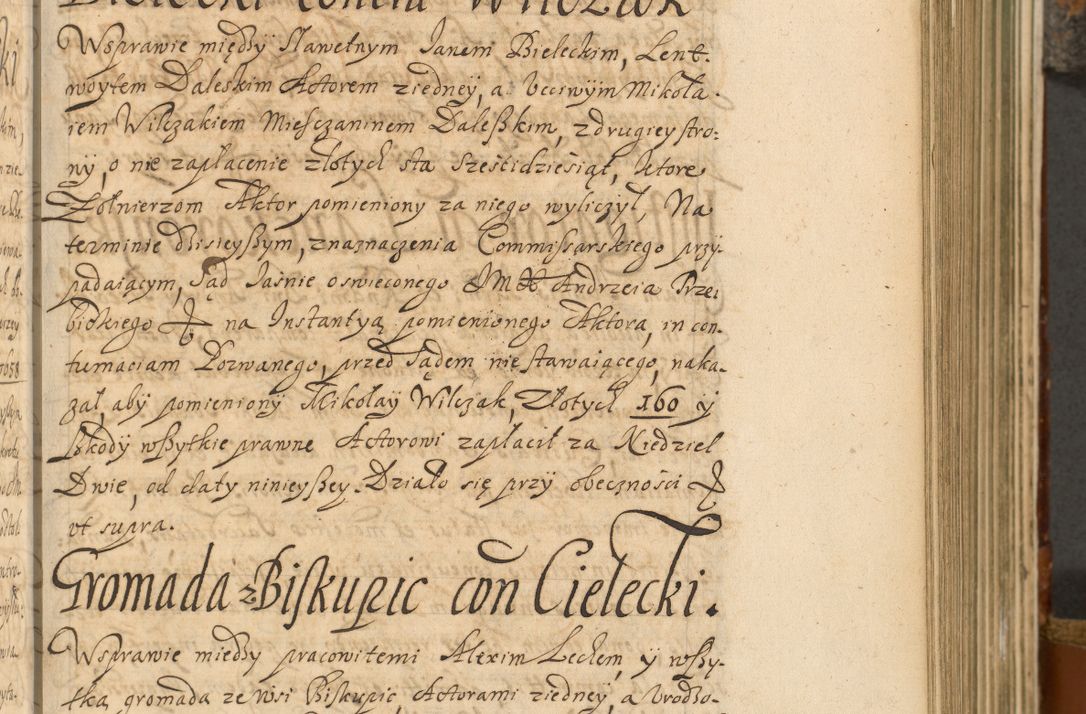 Bielecki contra Wilczak
Wsprawie między Sławetnym Janem Bieleckim, Lent.
woytem Daleskim Actorem ziedney, a Vcciwÿm Mikoła.
iem Wilczakiem Miesczaninem Daleßkim, zdrugiey stro:
nÿ, o nie zapłacenie złotych sta Sześcidziesiąt, ktore
Zołnierzom Aktor pomieniony za niego wyliczył, Na
terminie dzisieyßym, znaznaczenia Commissarskiego przy.
padaiącym, Sąd Jaśnie oswieconego JMX Andrzeia Trze:
bickiego na Instantyą pomienionego Aktora, in con.
tumaciam Pozwanego, przed Sądem nie stawaiącego, naka.
zał, aby pomieniony Mikołaÿ Wilczak, Złotych 160 ÿ
ßkody wßytkie prawne Actorowi zapłacił za Niedziel
Dwie, od daty ninieyßey. Działo się przy obecznośći
vt supra.
Gromada z Biskupic con Cielecki.
Wsprawie miedzy pracowitemi Alexim Lechem, ÿ wßy-
tką gromada ze wsi Biskupic, Actorami ziedneÿ, a Vrodzo-